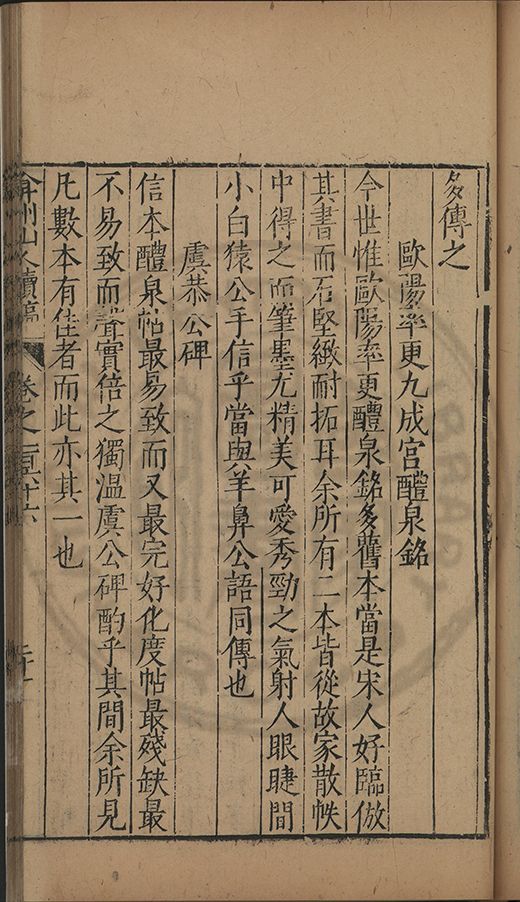 多傳之
歐陽率更九成宮醴泉銘
今世惟歐陽率更醴泉銘多舊本當是宋人好臨倣
其書而石堅緻耐拓耳余所有二本皆從故家散帙
中得之而筆墨尤精美可愛秀勁之氣射人眼睫間
小白猿公手信乎當與羊鼻公語同傳也
虞恭公碑
信本醴泉帖最易致而又最完好化度帖最殘缺最
不易致而聲實倍之獨溫虞公碑酌乎其間余所見
凡數本有佳者而此亦其一也
弇州山人續稿 卷之一百六十六